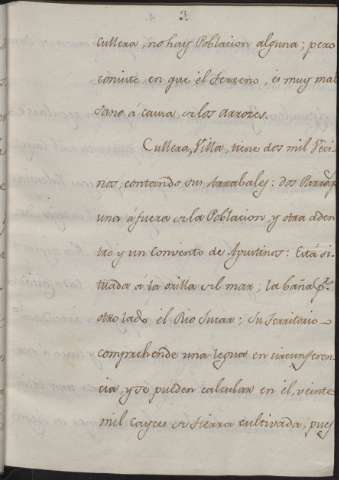 3
Cullera, no hay Poblacion alguna; pero
consiste en que el terreno, es muy mal
sano á causa de los arrozes.
Cullera, Villa, tiene dos mil Veci
nos, contando sus Arrabales: dos Parroqs
una á fuera de la Poblacion, y otra áden
tro y un Convento de Agustinos: Está si
tuada á la orilla del mar; la baña pr.
otro lado el Rio Jucar; Su territorio
comprehende una legua en circunferen
cia, y se pueden calcular en él, veinte
mil cayces de tierra cultivada, pues